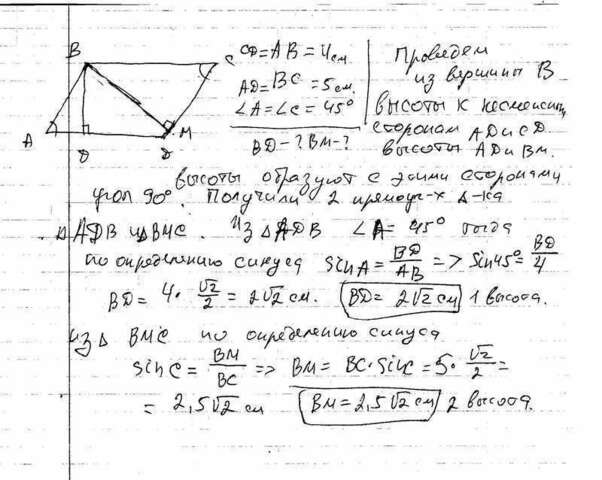 B
C
A
D
M
D
CD=AB=4см
AD=BC=5см.
∠A=∠C=45°
BD-? BM-?
Проведем
из вершины B
высоты к несмежн,
сторонам AD и CD.
высоты AD и BM.
высоты образуют с этими сторонами
угол 90°. Получили 2 прямоуг-х Δ-ка
ΔADB и ΔBMC. Из ΔADB ∠A=45° тогда
по определению синуса sinA=BD/AB=>sin45°=BD/4
BD=4·√2/2=2√2 см. BD=2√2 см 1 высота.
из Δ BMC по определению синуса
sinC=BM/BC=>BM=BC·sinC=5·√2/2=
=2,5√2 см BM=2,5√2 см 2 высота.